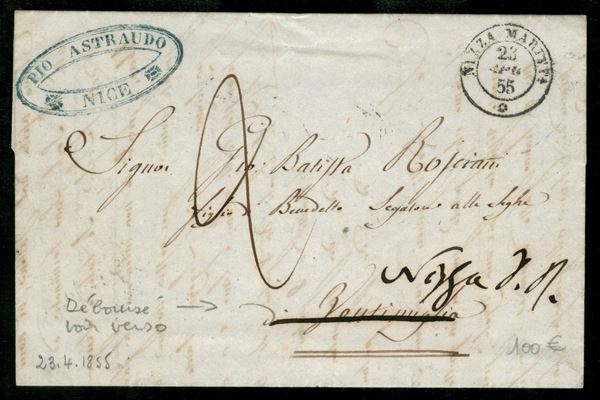 PIO ASTRAUDO
NICE
NIZZA MARITTA
23
APR
55
Signor Gio Batissa Rossiani
Benedetto alle Seghe
Nizza
di Ventimiglia
Débousé
voir verso
23.4.1855
100 €